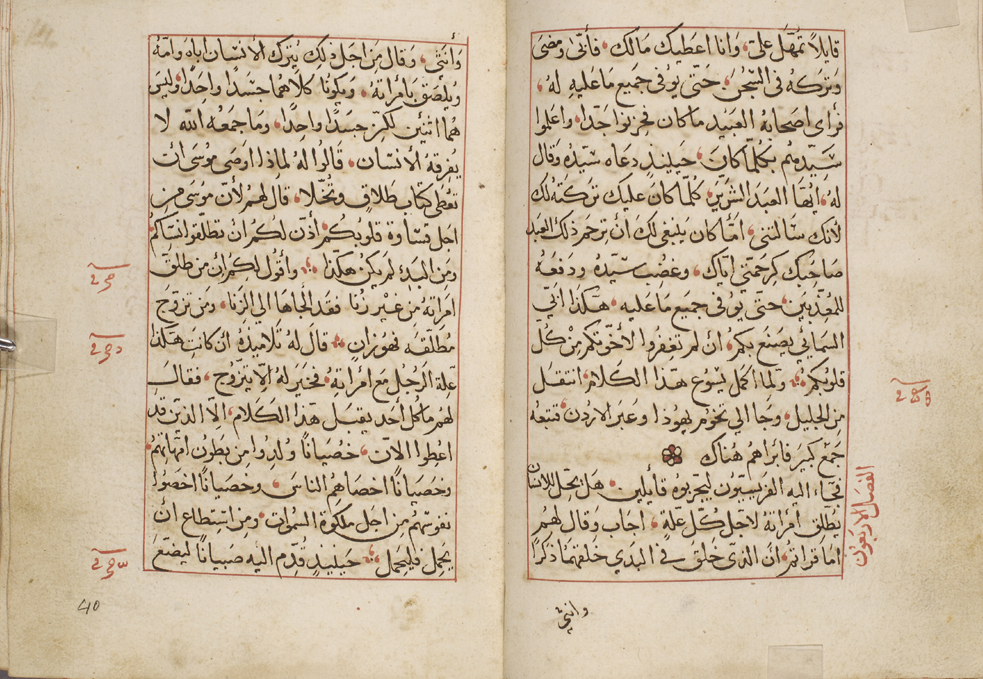 قايلاً تمهل علىّ وانا اعطيك مالك فأبى ومضى
وتركه فى السجن حتى يوفى جميع ما عليه له
فراى اصحابه العبيد ما كان فحزنوا جدا واعلموا
سيدهم بكلما كان حينيدٍ دعاه سيده وقال
له ايها العبد الشرير كلما كان عليك تركته لك
لأنك سالتنى أما كان ينبغى لك أن ترحم ذلك العبد
صاحبك كرحمتى اياك وغضب سيده ودفعه
للمعذبين حتى يوفى جميع ما عليه هكذا ابى
السمائى يصنع بكم ان لم تغفروا لأخوتكم من كل
قلوبكم ولما اكمل يسوع هذا الكلام انتقل
من الجليل وجا الى تخوم يهوذا وعبر الاردن فتبعه
جمع كبير فابراهم هناك
فجاء اليه الفريسيون ليجربوه قائلين هل يحل للانسان
يطلق امراته لاجل كل علة اجاب وقال لهم
اما قراتم ان الذى خلق فى البدى خلقهما ذكرا
الفصل الاربعون
وانثى
وأنثى وقال من اجل ذلك يترك الانسان اباه وامه
ويلصق بأمراته ويكونا كلاهما جسدًا واحدًا وليس
هما اثنين لكن جسدًا واحدًا وما جمعه الله لا
يفرقه الأنسان قالوا له لماذا اوصى موسى ان
تعطى كتاب طلاق وتخلا قال لهم لأن موسى من
اجل قساوة قلوبكم أذن لكم ان تطلقوا نساكم
ومن البدء لم يكن هكذا وأقول لكم ان من طلق
امراته من غير زنا فقد الجاها الى الزنا ومن تزوج
مطلقه فهو زانٍ قال له تلاميذه ان كانت هكذا
علة الرجل مع امراته فخير له الا يتزوج فقال
لهم ما كل أحد يقبل هذا الكلام الا الذين قد
اعطوا الان خصيانًا ولدوا من بطون امهاتهم
وخصيانًا اخصاهم الناس وخصيانًا اخصوا
نفوسهم من اجل ملكوة السموات ومن استطاع ان
يحمل فليحمل حينيدٍ قدم اليه صبيانًا ليضع
40